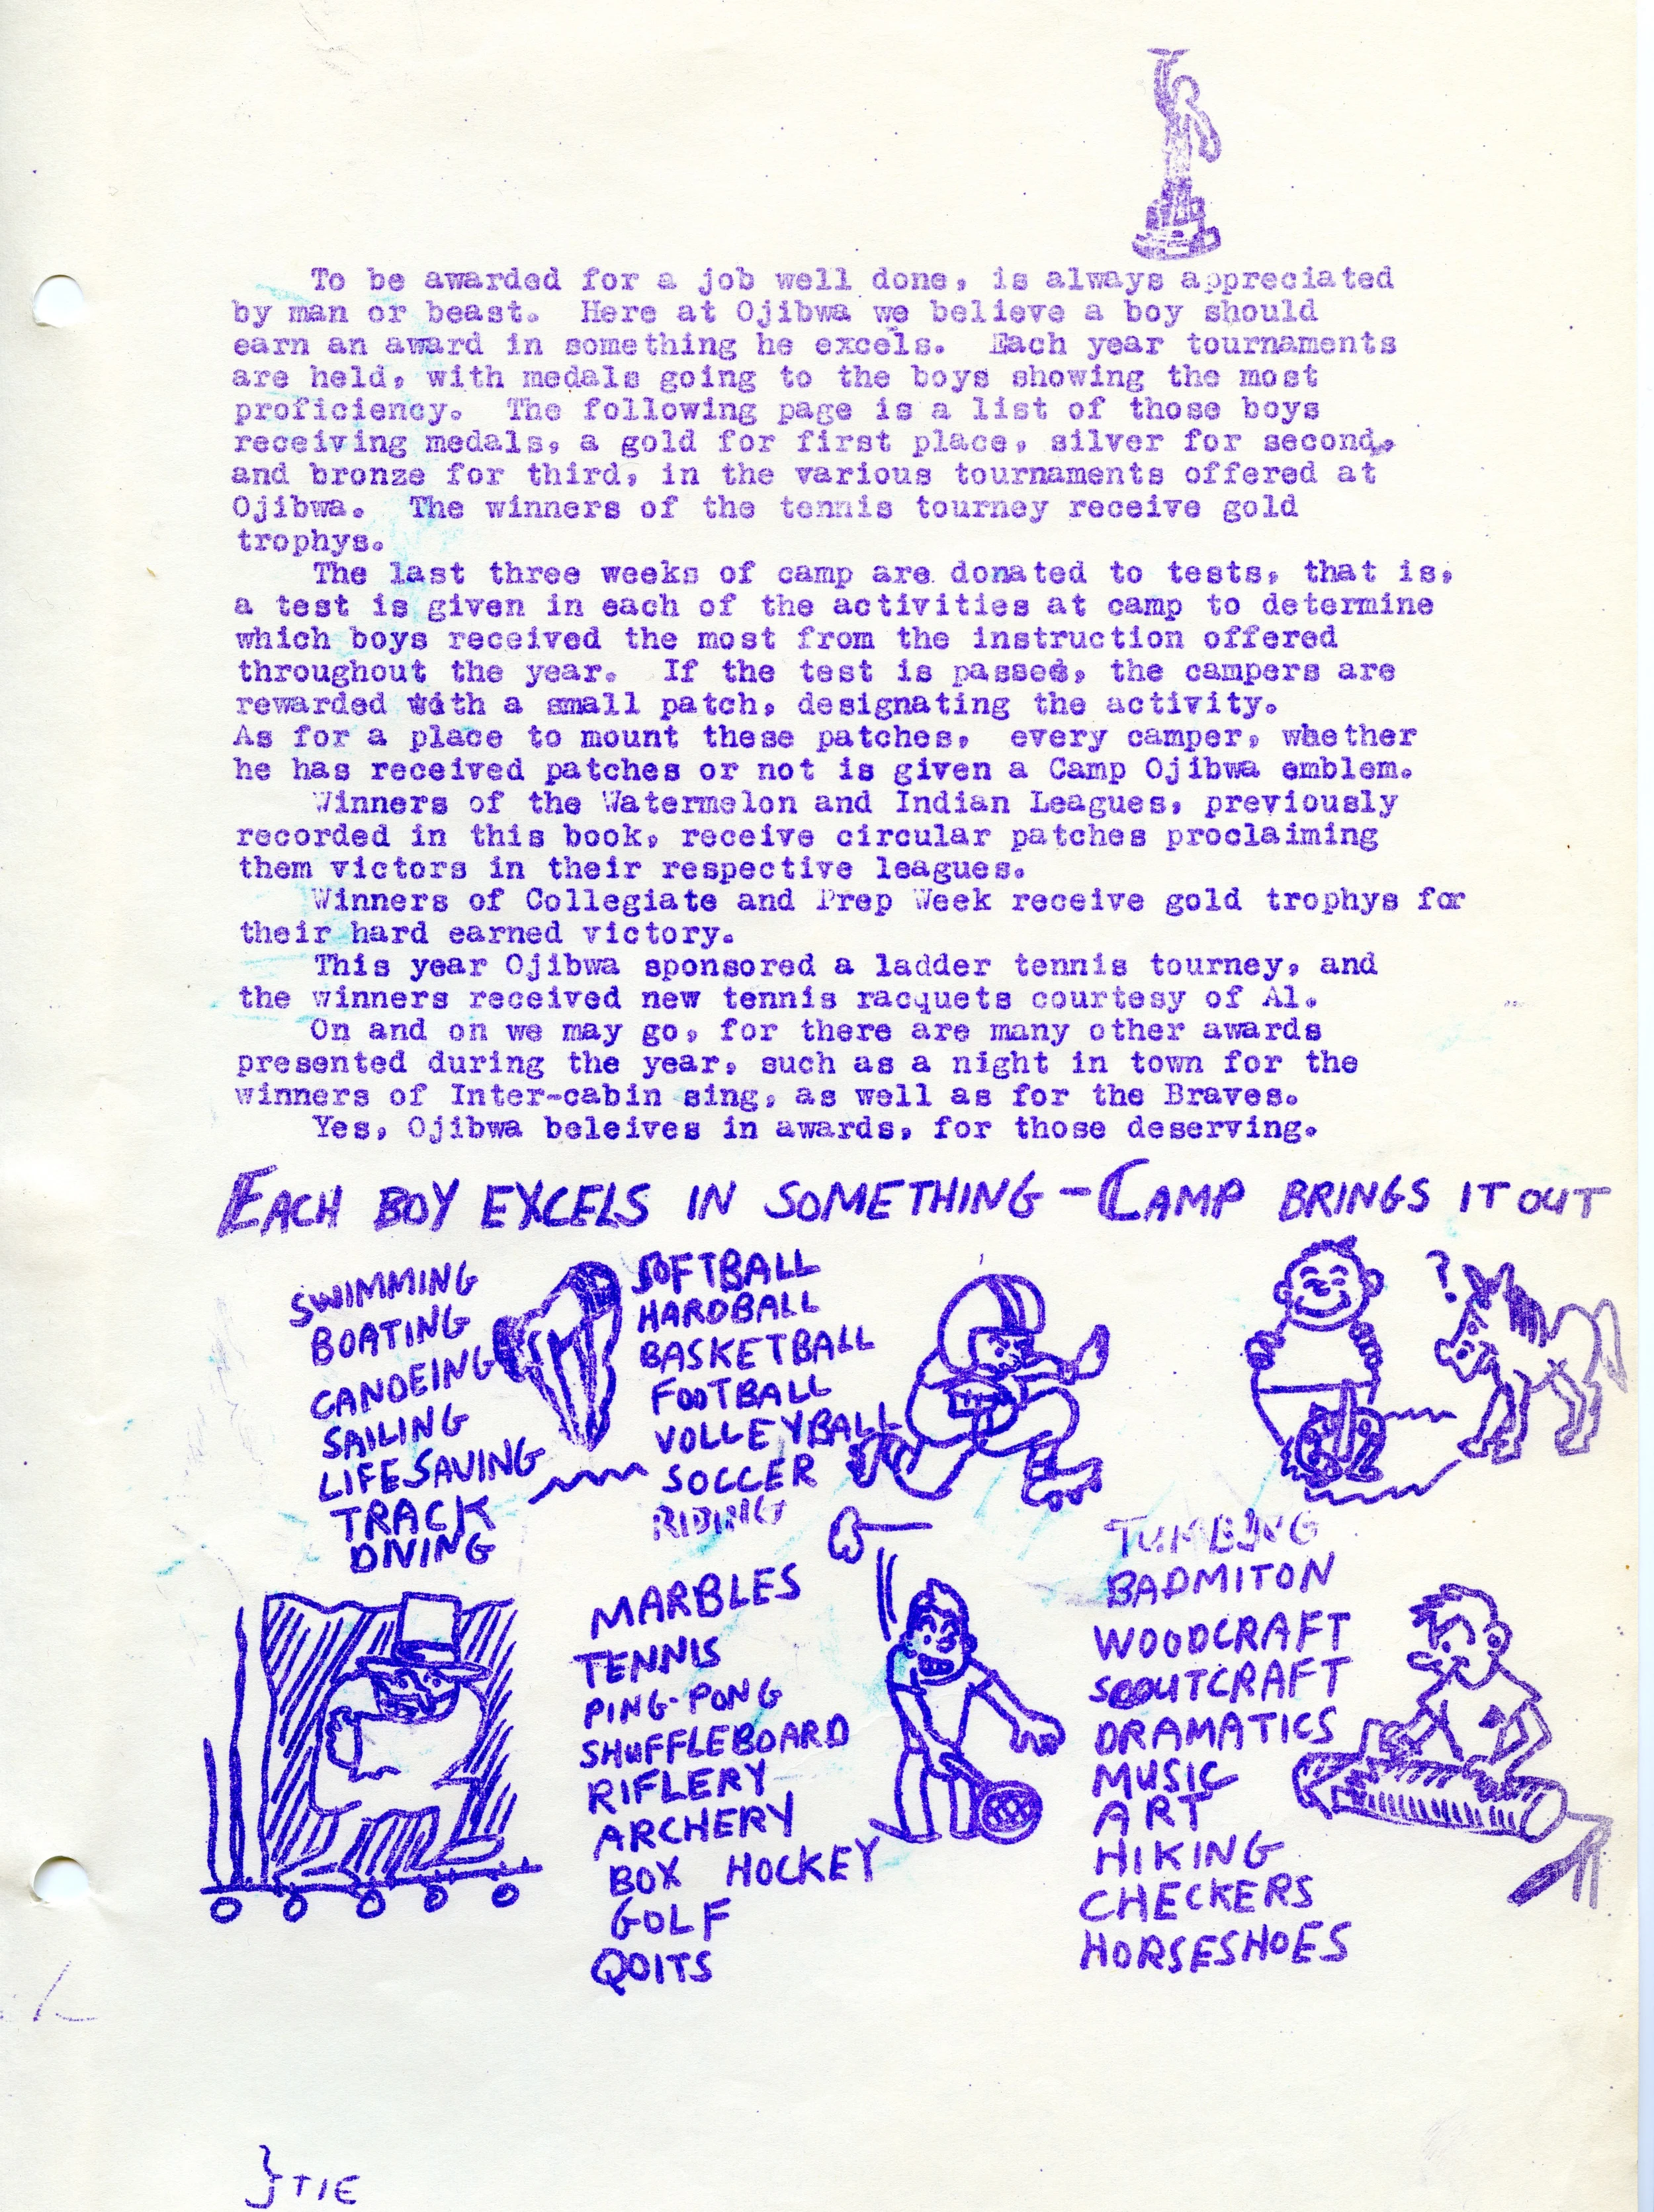 To be awarded for a job well done, is always appreciated
by man or beast. Here at Ojibwa we believe a boy should
earn an award in something he excels. Each year tournaments
are held, with medals going to the boys showing the most
proficiency. The following page is a list of those boys
receiving medals, a gold for first place, silver for second,
and bronze for third, in the various tournaments offered at
Ojibwa. The winners of the tennis tourney receive gold
trophys.
The last three weeks of camp are donated to tests, that is,
a test is given in each of the activities at camp to determine
which boys received the most from the instruction offered
throughout the year. If the test is passed, the campers are
rewarded with a small patch, designating the activity.
As for a place to mount these patches, every camper, whether
he has received patches or not is given a Camp Ojibwa emblem.
Winners of the Watermelon and Indian Leagues, previously
recorded in this book, receive circular patches proclaiming
them victors in their respective leagues.
Winners of Collegiate and Prep Week receive gold trophys for
their hard earned victory.
This year Ojibwa sponsored a ladder tennis tourney, and
the winners received new tennis racquets courtesy of Al.
On and on we may go, for there are many other awards
presented during the year, such as a night in town for the
winners of Inter-cabin sing, as well as for the Braves.
Yes, Ojibwa beleives in awards, for those deserving.
EACH BOY EXCELS IN SOMETHING - CAMP BRINGS IT OUT
SWIMMING
BOATING
CANOEING
SAILING
LIFESAVING
TRACK
DIVING
SOFTBALL
HARDBALL
BASKETBALL
FOOTBALL
VOLLEYBALL
SOCCER
RIDING
?
MARBLES
TENNIS
PING-PONG
SHUFFLEBOARD
RIFLERY
ARCHERY
BOX HOCKEY
GOLF
QOITS
BADMITON
WOODCRAFT
SCOUTCRAFT
DRAMATICS
MUSIC
ART
HIKING
CHECKERS
HORSESHOES
} TIE